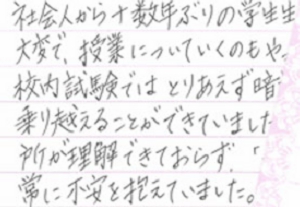 社会人から十数年ぶりの学生生
大変で、授業についていくのもや
校内試験では とりあえず暗
乗り越えることができていました
所が理解できておらず、「
常に不安を抱えていました。